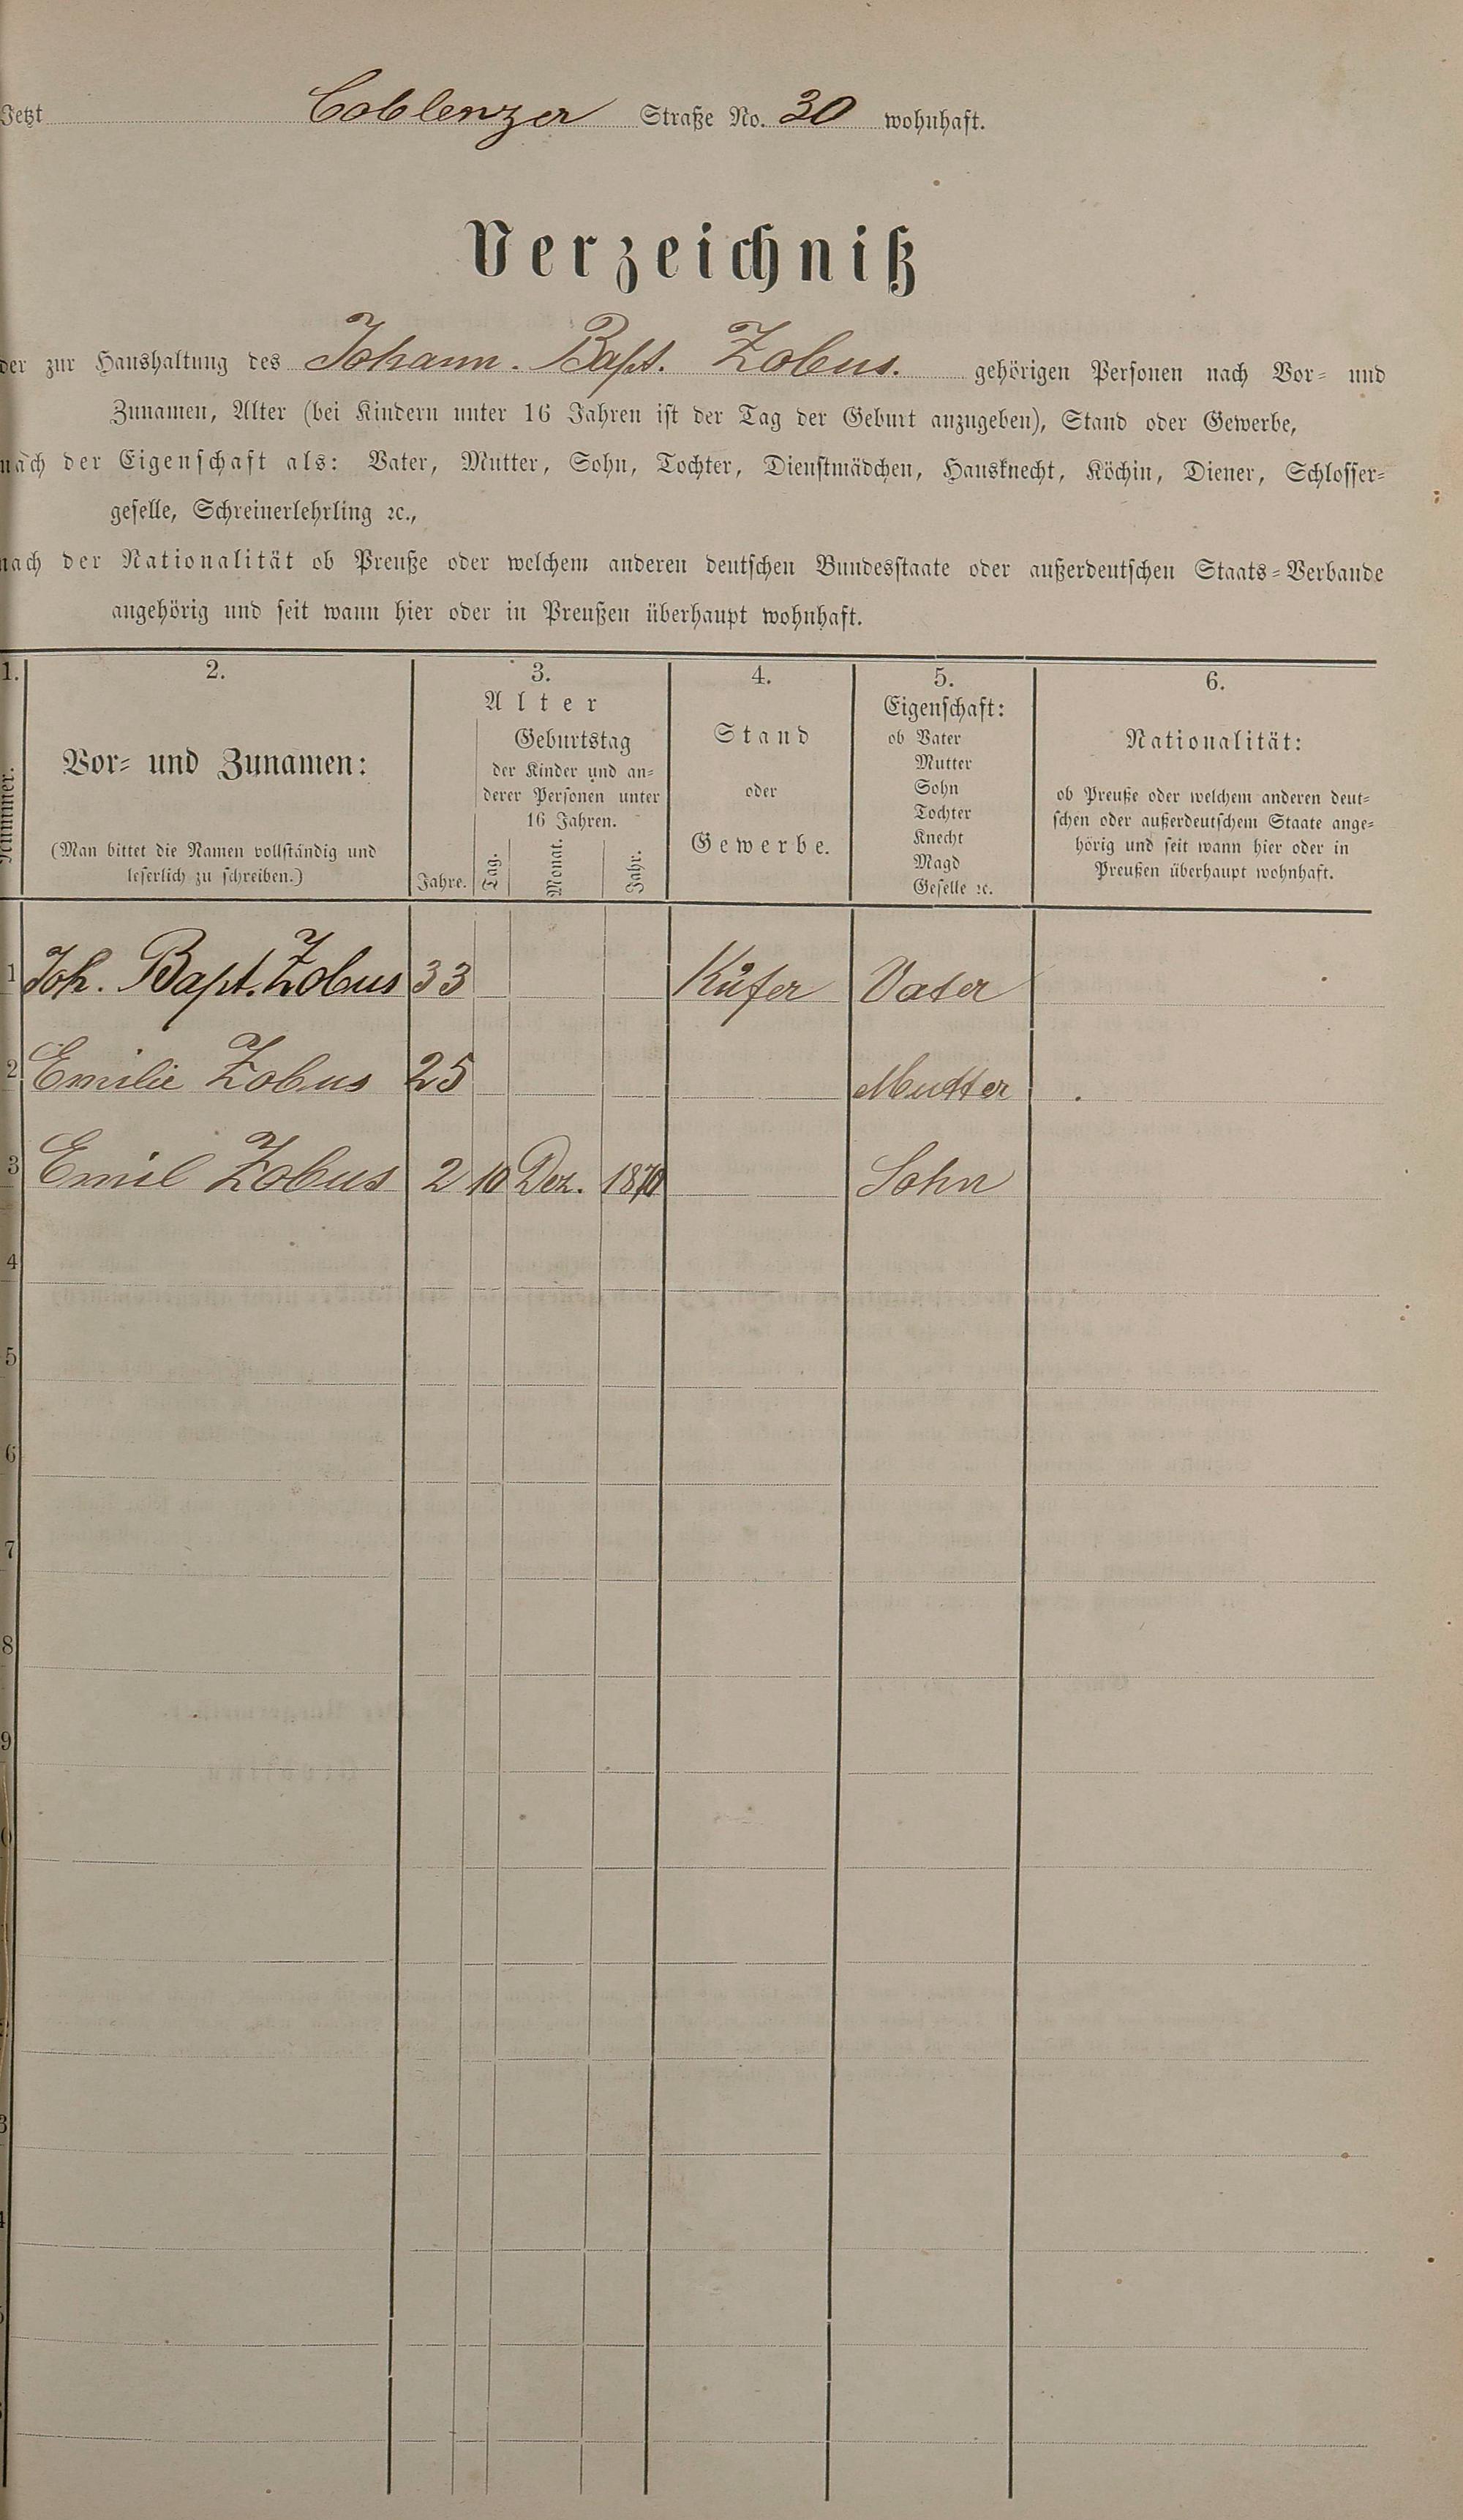 Jetzt Coblenzer Straße No. 30 wohnhaft.
Verzeichniß
der zur Haushaltung des Johann. Bapt. Zobus. gehörigen Personen nach Vor- und
Zunamen, Alter (bei Kindern unter 16 Jahren ist der Tag der Geburt anzugeben), Stand oder Gewerbe,
nach der Eigenschaft als: Vater, Mutter, Sohn, Tochter, Dienstmädchen, Hausknecht, Köchin, Diener, Schlosser-
geselle, Schreinerlehrling ꝛc.,
nach der Nationalität ob Preuße oder welchem anderen deutschen Bundesstaate oder außerdeutschen Staats-Verbande
angehörig und seit wann hier oder in Preußen überhaupt wohnhaft.
1. 2. 3. 4. 5. 6.
Nummer.
Vor- und Zunamen:
(Man bittet die Namen vollständig und
leserlich zu schreiben.)
Alter
Jahre.
Geburtstag
der Kinder und an-
derer Personen unter
16 Jahren.
Tag. Monat. Jahr.
Stand
oder
Gewerbe.
Eigenschaft:
ob Vater
Mutter
Sohn
Tochter
Knecht
Magd
Geselle ꝛc.
Nationalität:
ob Preuße oder welchem anderen deut-
schen oder außerdeutschem Staate ange-
hörig und seit wann hier oder in
Preußen überhaupt wohnhaft.
1 Joh. Bapt. Zobus 33 Küfer Vater
2 Emilie Zobus 25 Mutter
3 Emil Zobus 2 10 Dez. 1870
Sohn
4
5
6
7
8
9